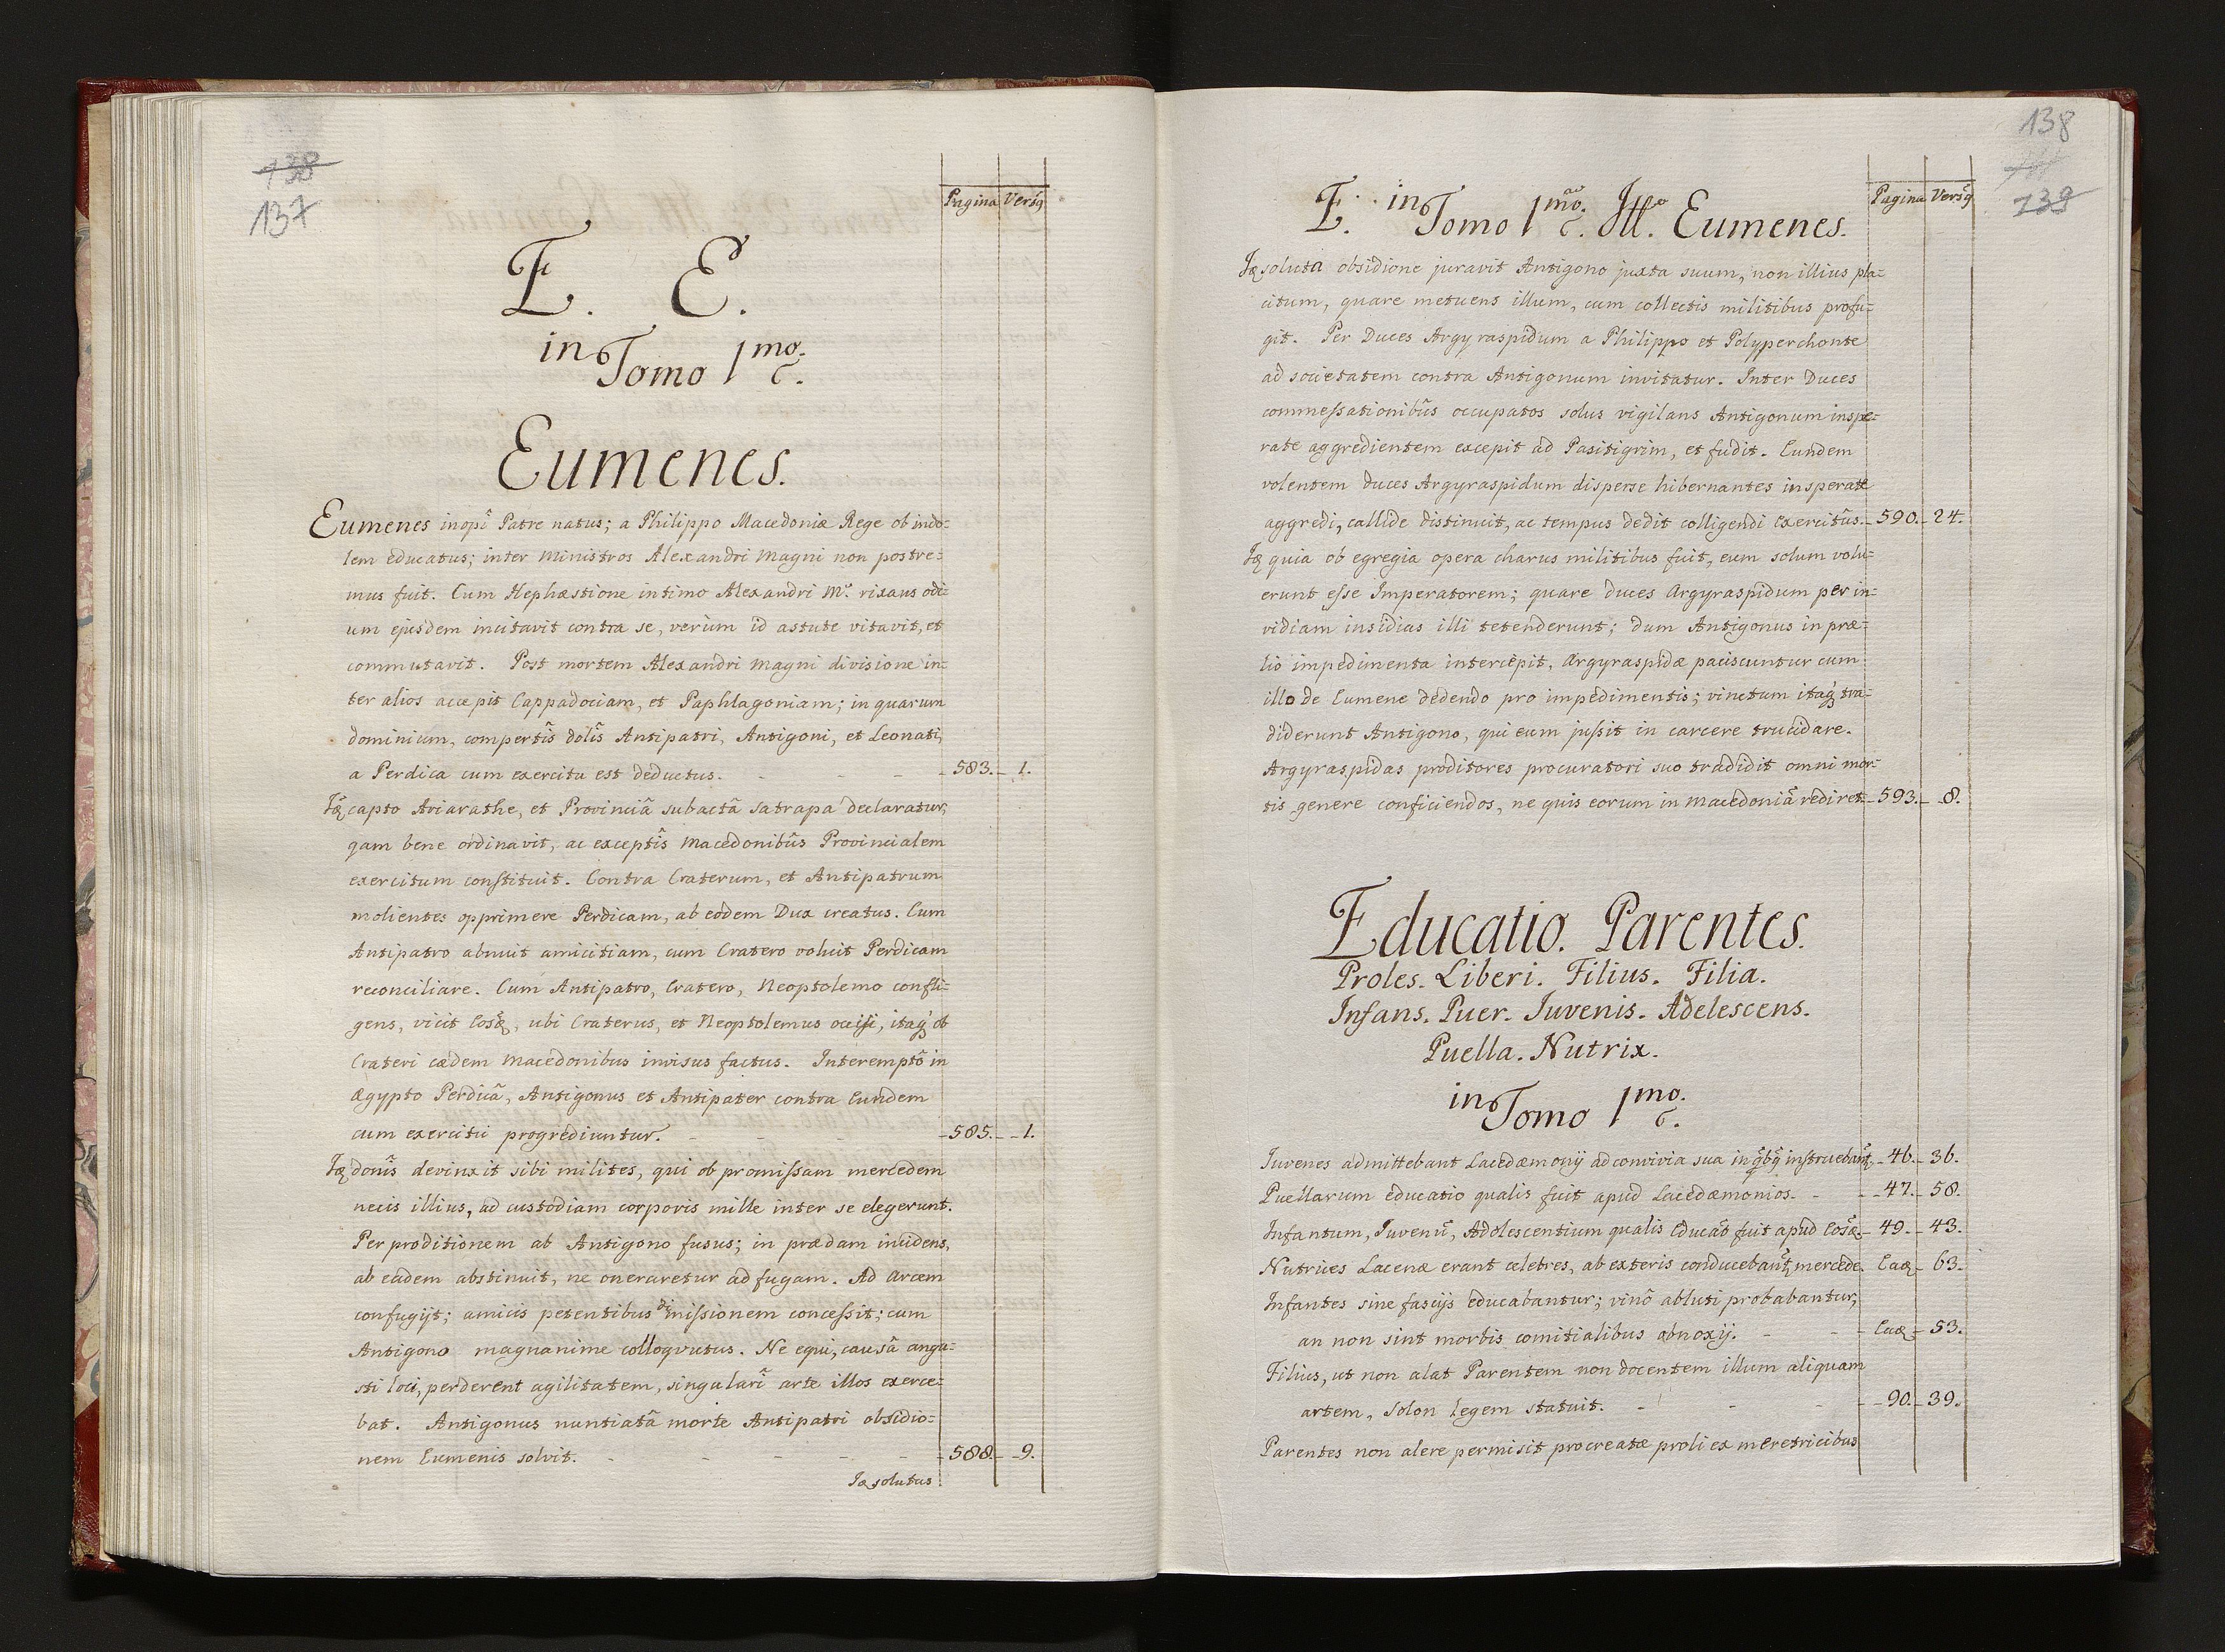 138
137
Pagina Versq
E. E.
in Tomo 1mo.
Eumenes.
Eumenes inopî Patre natus; a Philippo Macedoniæ Rege ob indo=
lem educatus; inter Ministros Alexandri Magni non postre=
mus fuit. Cum Hephæstione intimo Alexandri M. rixans odi=
um ejusdem incitavit contra se, verum id astute vitavit, et
commutavit. Post mortem Alexandri Magni divisione in=
ter alios accepit Cappadociam, et Paphlagoniam; in quarum
dominium, compertîs dolîs Antipatri, Antigoni, et Leonati,
a Perdica cum exercitu est deductus. - - - 583. - 1.
capto Ariarathe, et Provinciâ subactâ satrapa declaratur,
qam bene ordinavit, ac exceptîs Macedonibûs Provincialem
exercitum constituit. Contra Craterum, et Antipatrum
molientes opprimere Perdicam, ab eodem Dux creatus. Cum
Antipatro abnuit amicitiam, cum Cratero voluit Perdicam
reconciliare. Cum Antipatro, Cratero, Neoptolemo confli=
gens, vicit , ubi Craterus, et Neoptolemus occisi, itaq ob
Crateri cædem Macedonibus invisus factus. Interemptô in
Ægypto Perdicâ, Antigonus et Antipater contra Eundem
cum exercitu progrediuntur. - - - 585. - 1.
donîs devinxit sibi milites, qui ob promissam mercedem
necis illius, ad custodiam corporis mille inter se elegerunt.
Per proditionem ab Antigono fusus; in prædam incidens,
ab eadem abstinuit, ne oneraretur ad fugam. Ad arcem
confugijt; amicis petentibus dimissionem concessit; cum
Antigono magnanime colloqvutus. Ne equi, causâ angu=
sti loci, perderent agilitatem, singularî arte illos exerce=
bat. Antigonus nuntiatâ morte Antipatri obsidio=
nem Eumenis solvit. - - - 588. - 9.
solutus
138
139
Pagina Versq
E. in Tomo 1mo. Eumenes.
soluta obsidione juravit Antigono juxta suum, non illius pla=
citum, quare metuens illum, cum collectis militibus profu=
git. Per Duces Argyraspidum a Philippo et Polyperchonte
ad societatem contra Antigonum invitatur. Inter Duces
commessationibûs occupatos solus vigilans Antigonum inspe=
rate aggredientem excepit ad Pasitigrim, et fudit. Eundem
volentem Duces Argyraspidum disperse hibernantes insperate
aggredi, callide distinuit, ac tempus dedit colligendi exercitûs. - 590. - 24.
quia ob egregia opera charus militibus fuit, eum solum volu=
erunt esse Imperatorem; quare duces Argyraspidum per in=
vidiam insidias illi tetenderunt; dum Antigonus in præ=
lio impedimenta intercepit, Argyraspidæ paciscuntur cum
illo de Eumene dedendo pro impedimentis; vinctum itaq tra=
diderunt Antigono, qui eum jussit in carcere trucidare.
Argyraspidas proditores procuratori suo tradidit omni mor=
tis genere conficiendos, ne quis eorum in Macedoniâ rediret - 593. - 8.
Educatio. Parentes.
Proles. Liberi. Filius. Filia.
Infans. Puer. Juvenis. Adelescens.
Puella. Nutrix.
in Tomo 1mo.
Juvenes admittebant Lacedæmonij ad convivia sua in - 46. - 36.
Puellarum educatio qualis fuit apud Lacedæmonios. - - 47. - 58.
Infantum, Juvenû, Adolescentium qualis fuit apud - 49. - 43.
Nutrices Lacenæ erant celebres, ab exteris mercede. - 63.
Infantes sine fascijs educabantur; vinô abluti probabantur,
an non sint morbis comitialibus obnoxij. - - - 53.
Filius, ut non alat Parentem non docentem illum aliquam
artem, Solon legem statuit. - - - 90. - 39.
Parentes non alere permisit procreatæ proli ex meretricibus